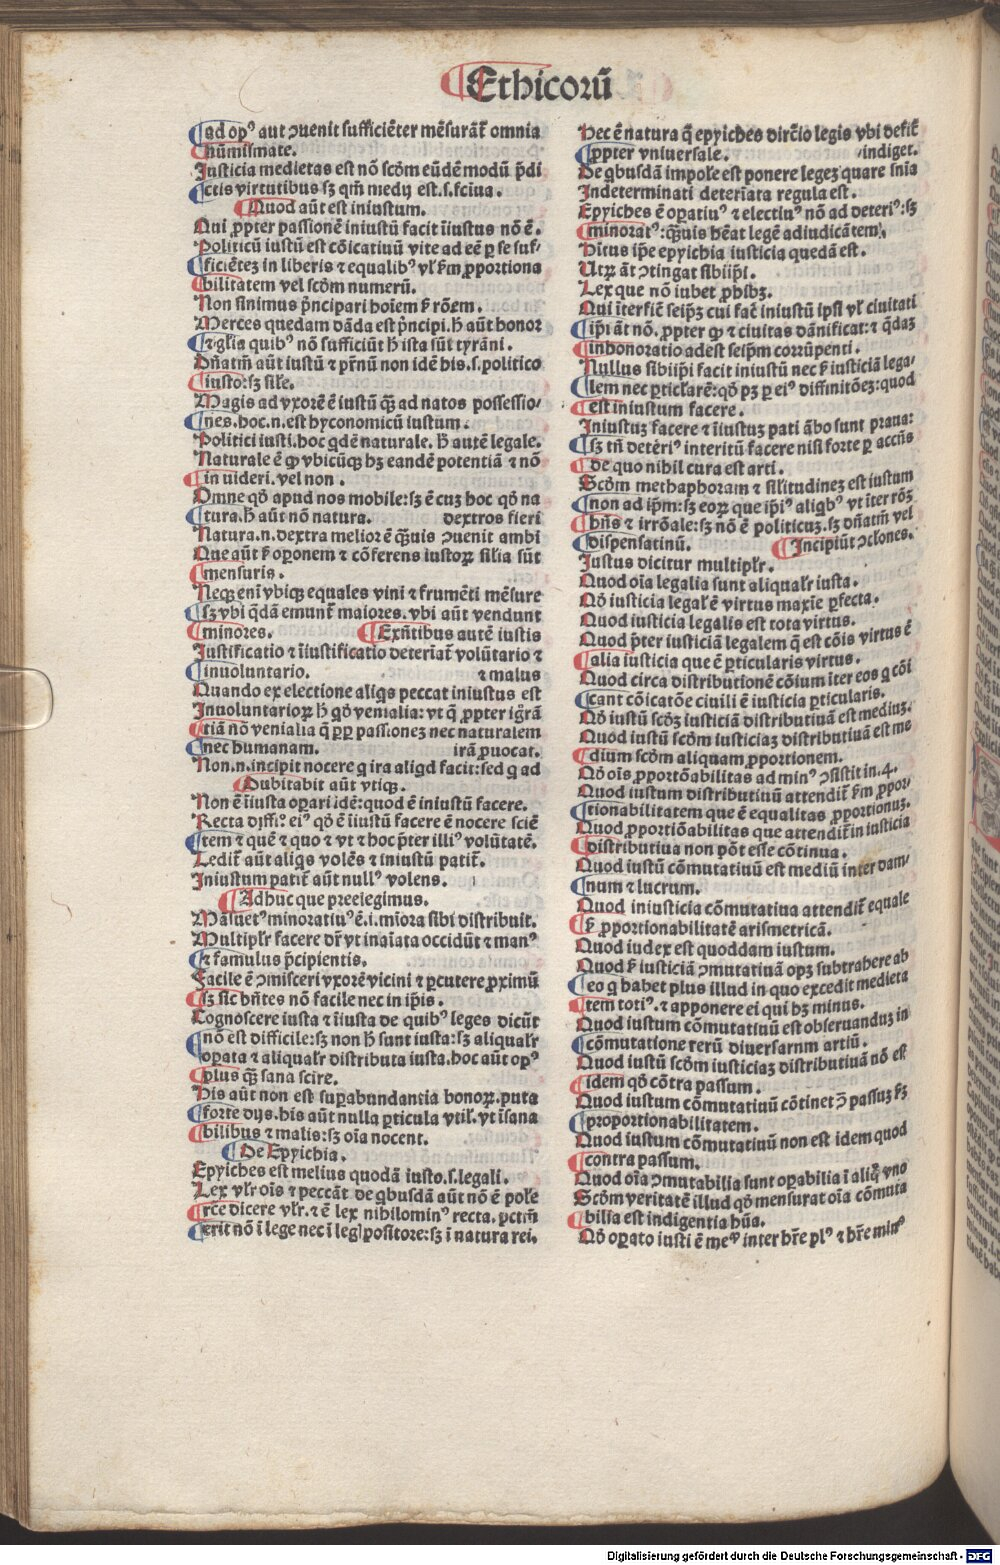 Ethicorū
ad opꝰ aut ↄuenit sufficiēter mēsurāt᷑ omnia
nūmismate.
Justicia medietas est nō scḋm eūdē modū p̄di
ctis virtutibus sꝫ qm̄ medij est.s.fciua.
Quod aūt est iniustum.
Qui ꝓpter passionē iniustū facit iīustus nō ē.
Politicū iustū est cōicatiuū vite ad eē ꝑ se suf⸗
ficiētez in liberis ⁊ equalibꝰ vl' ẜm ꝓportiona
bilitatem vel scḋm numerū.
Non sinimus p̄ncipari hoīem ẜ rōem.
Merces quedam dāda est p̄ncipi.h̄ aūt honor
⁊ gl'ia quibꝰ nō sufficiūt h̄ ista sūt tyrāni.
Dn̄atm̄ aūt iustū ⁊ pr̄nū non idē his.s.politico
iusto:sꝫ sil'e.
Magis ad vxorē ē iustū q̄ꝫ ad natos possessio⸗
nes.hoc.n.est hyconomicū iustum.
Politici iusti.hoc qdē naturale. h̄ autē legale.
Naturale ē ꝙ vbicūqꝫ hꝫ eandē potentiā ⁊ nō
in uideri.vel non.
Omne qḋ apud nos mobile:sꝫ ē cuꝫ hoc qḋ na
tura.h̄ aūt nō natura. dextros fieri
Natura.n.dextra melior ē q̄ꝫuis ↄuenit ambi
Que aūt ẜ oꝑonem ⁊ cōferens iustoꝝ silia sūt
mensuris.
Neqꝫ enī vbiqꝫ equales vini ⁊ frumēti mēsure
sꝫ vbi qdā emunt maiores.vbi aūt vendunt
minores. Exn̄tibus autē iustis
Justificatio ⁊ iīustificatio deteriat᷑ volūtario ⁊
inuoluntario. ⁊ malus
Quando ex electione aliqs peccat iniustus est
Inuoluntarioꝝ h̄ qḋ venialia: vt q̄ ꝓpter igr̄ā
tiā nō venialia q̄ ꝑp passionez nec naturalem
nec humanam. irā ꝓuocat.
Non.n.incipit nocere q ira aliqd facit:sed q ad
Dubitabit aūt vtiqꝫ.
Non ē iīusta oꝑari idē:quod ē iniustū facere.
Recta diffiꝰ eiꝰ qḋ ē iīustū facere ē nocere sciē
tem ⁊ quē ⁊ quo ⁊ vt ⁊ hoc p̄ter illiꝰ volūtatē.
Ledit᷑ aūt aliqs volēs ⁊ iniustū patit᷑.
Iniustum patit᷑ aūt nullꝰ volens.
Adhuc que preelegimus.
Māsuetꝰ minoratiuꝰ ē.i.mīora sibi distribuit.
Multipl'r facere dr̄ vt inaīata occidūt ⁊ manꝰ
⁊ famulus p̄cipientis.
Facile ē ↄmisceri vxorē vicini ⁊ ꝑcutere ꝓximū
sꝫ sic hn̄tes nō facile nec in ip̄is.
Cognoscere iusta ⁊ iīusta de quibꝰ leges dicūt
nō est difficile:sꝫ non h̄ sunt iusta:sꝫ aliqual'r
oꝑata ⁊ aliqual'r distributa iusta.hoc aūt opꝰ
plus q̄ꝫ sana scire.
His aūt non est suꝑabundantia bonoꝝ.puta
forte dijs.his aūt nulla ꝑticula vtil'.vt īsana
bilibus ⁊ malis:sꝫ oīa nocent.
De Epyichia.
Epyiches est melius quodā iusto.s.legali.
Lex vl'r oīs ⁊ peccāt de qbusdā aūt nō ē pol'e
rce dicere vl'r.⁊ ē lex nihilominꝰ recta.pctm̄
erit nō ī lege nec ī legl positore:sꝫ ī natura rei.
Hec ē natura q̄ epyiches dirc̄io legis vbi defit᷑
ꝓpter vniuersale. indiget.
De qbusdā impol'e est ponere legez quare snīa
Indeterminati deter̄iata regula est.
Epyiches ē oꝑatiuꝰ ⁊ electiuꝰ nō ad deteriꝰ:sꝫ
minoratꝰ:q̄ꝫuis hēat legē adiudicātem.
Hitus ip̄e epyichia iusticia quedā est.
Utꝝ āt ↄtingat sibiip̄i.
Lex que nō iubet ꝓhibꝫ.
Qui īterficit seip̄ꝫ cui facē iniustū ipsi vl' ciuitati
ip̄i āt nō. ꝓpter ꝙ ⁊ ciuitas dānificat:⁊ q̄daꝫ
inhonoratio adest seip̄m corrūpenti.
Nullus sibiip̄i facit iniustū nec ẜ iusticiā lega⸗
lem nec ꝑticl'arē:qḋ pꝫ ꝑ eiꝰ diffinitōez:quod
est iniustum facere.
Iniustuꝫ facere ⁊ iīustuꝫ pati ābo sunt praua:
sꝫ tn̄ deteriꝰ interitū facere nisi forte ꝑ accn̄s
de quo nihil cura est arti.
Scḋm methaphoram ⁊ silitudineꝫ est iustum
non ad ip̄m:sꝫ eoꝝ que ip̄iꝰ aligbꝰ vt īter rōꝫ
hn̄s ⁊ irrōale:sꝫ nō ē politicuꝫ.sꝫ dn̄atm̄ vel
dispensatiuū. Incipiūt ↄclones.
Justus dicitur multipl'r.
Quod oīa legalia sunt aliqual'r iusta.
Qḋ iusticia legal' ē virtus maxīe ꝑfecta.
Quod iusticia legalis est tota virtus.
Quod p̄ter iusticiā legalem q̄ est cōis virtus ē
alia iusticia que ē ꝑticularis virtus.
Quod circa distributionē cōium īter eos q cōi
cant cōicatōe ciuili ē iusticia ꝑticularis.
Qḋ iustū scḋꝫ iusticiā distributiuā est mediuꝫ.
Quod iustū scḋm iusticiaꝫ distributiuā est me
dium scḋm aliquam ꝓportionem.
Qḋ oīs ꝓportōabilitas ad minꝰ ↄsistit in.4.
Quod iustum distributiuū attendit᷑ ẜm ꝓpor⸗
tionabilitatem que ē equalitas ꝓportionuꝫ.
Quod ꝓportiōabilitas que attendit᷑ in iusticia
distributiua non pōt esse cōtinua.
Quod iustū cōmutatiuū est mediū inter dam⸗
num ⁊ lucrum.
Quod iniusticia cōmutatiua attendit᷑ equale
ẜ ꝓportionabilitatē arismetricā.
Quod iudex est quoddam iustum.
Quod ẜ iusticiā ↄmutatiuā opꝫ subtrahere ab
eo q habet plus illud in quo excedit medieta
tem totiꝰ.⁊ apponere ei qui hꝫ minus.
Quod iustum cōmutatiuū est obseruanduꝫ in
cōmutatione rerū diuersarnm artiū.
Quod iustū scḋm iusticiaꝫ distributiuā nō est
idem qḋ cōtra passum.
Quod iustum cōmutatiuū cōtinet ↄ̄ passuꝫ ẜꝫ
proportionabilitatem.
Quod iustum cōmutatiuū non est idem quod
contra passum.
Quod oīa ↄmutabilia sunt oꝑabilia ī aliq̄ vno
Scḋm veritatē illud qḋ mensurat oīa cōmuta
bilia est indigentia hūa.
Qḋ oꝑato iusti ē meꝰ inter hr̄e plꝰ ⁊ hr̄e minꝰ
Digitalisierung gefördert durch die Deutsche Forschungsgemeinschaft - DFG